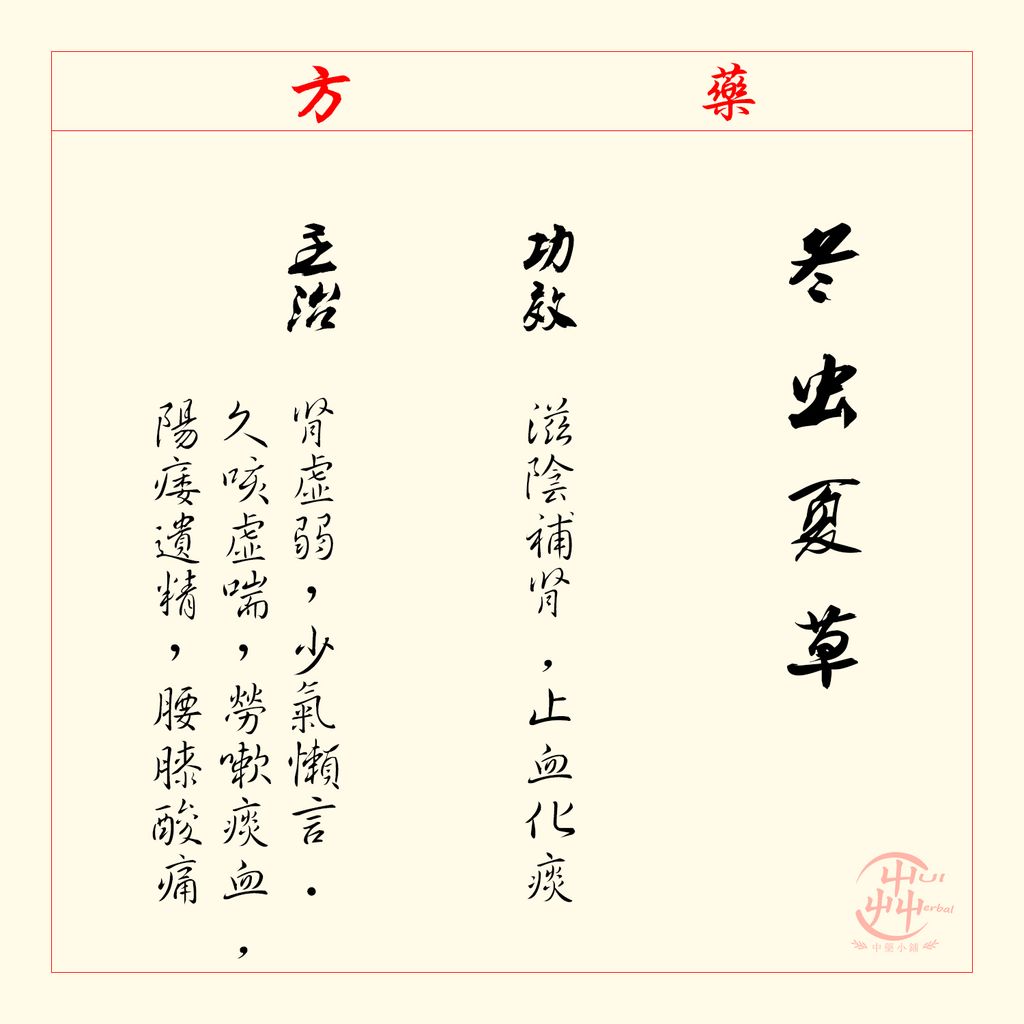 藥方
冬虫夏草
功效
滋陰補腎，止血化痰
主治
腎虛弱，少氣懶言．
久咳虛喘，勞嗽痰血，
陽痿遺精，腰膝酸痛
HUI
Herbal
中藥小鋪